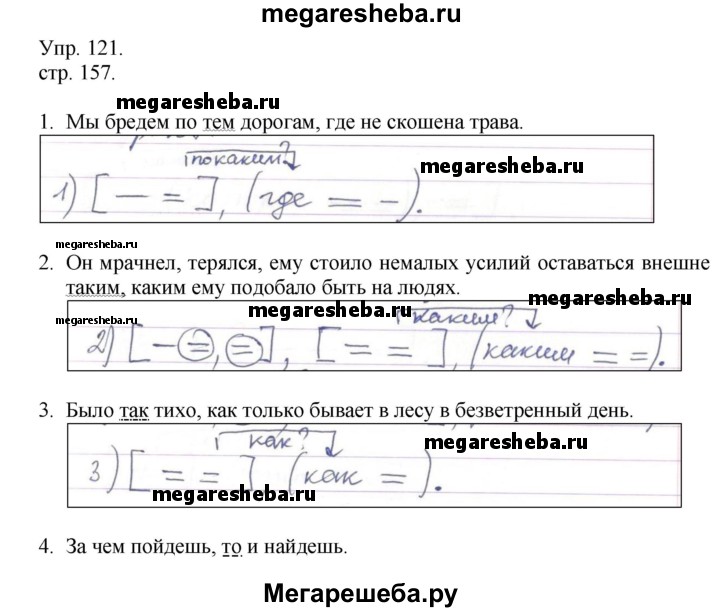 megaresheba.ru
Упр. 121.
стр. 157.
megaresheba.ru
1. Мы бредем по тем дорогам, где не скошена трава.
по каким?
megaresheba.ru
1) [ — = ], (где = –).
megaresheba.ru
2. Он мрачнел, терялся, ему стоило немалых усилий оставаться внешне
таким, каким ему подобало быть на людях.
megaresheba.ru
megaresheba.ru
каким?
2) [ – =, = ], [ = = ], (каким = =).
3. Было так тихо, как только бывает в лесу в безветренный день.
как?
megaresheba.ru
3) [ = = ] (как = ).
megaresheba.ru
4. За чем пойдешь, то и найдешь.
Мегарешеба.ру